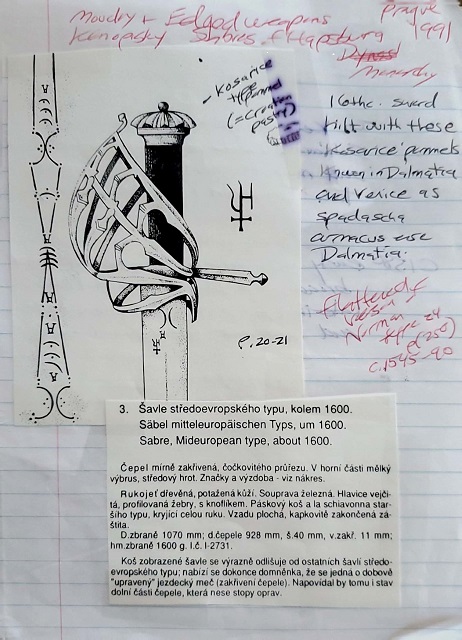 Moudry + Edged weapons
Konopisky Sabres of Hapsburg
Monarchy
Prague
1991
- Kosarice
type pommel
(= Croatian
p. 20-21
16thc. sword
hilt with these
'Kosarice' pommels
Known in Dalmatia
and Venice as
spadascha
Dalmatia.
Flattened
version
Norman
type 24
c. 1545-90
3. Šavle středoevropského typu, kolem 1600.
Säbel mitteleuropäischen Typs, um 1600.
Sabre, Mideuropean type, about 1600.
Čepel mírně zakřivená, čočkovitého průřezu. V horní části mělký
výbrus, středový hrot. Značky a výzdoba - viz nákres.
Rukojeť dřevěná, potažená kůží. Souprava železná. Hlavice vejči-
tá, profilovaná žebry, s knoflíkem. Páskový koš a la schiavonna star-
šího typu, kryjící celou ruku. Vzadu plochá, kapkovitě zakončená zá-
štita.
D.zbraně 1070 mm; d.čepele 928 mm, š.40 mm, v.zakř. 11 mm;
hm.zbraně 1600 g. I.č. I-2731.
Koš zobrazené šavle se výrazně odlišuje od ostatních šavlí středo-
evropského typu; nabízí se dokonce domněnka, že se jedná o dobově
"upravený" jezdecký meč (zakřivení čepele). Napovídal by tomu i stav
dolní části čepele, která nese stopy oprav.